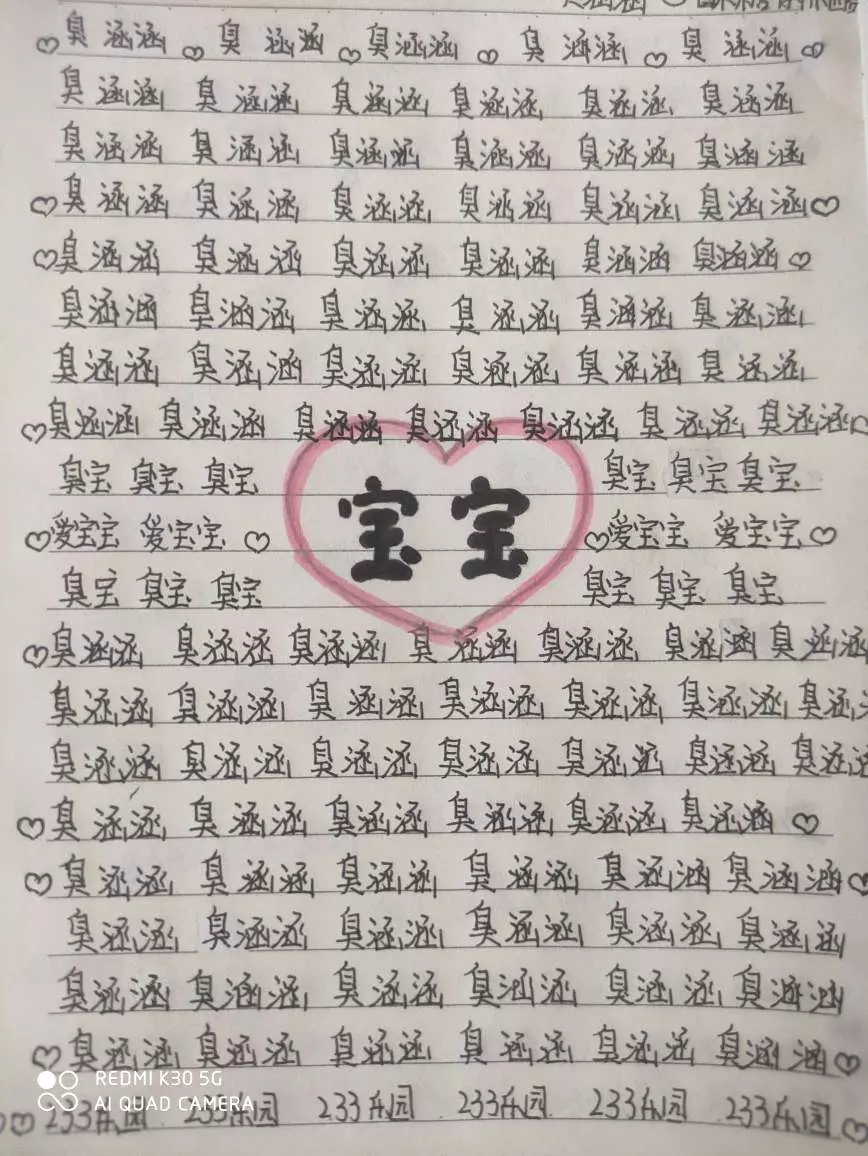 ♡臭涵涵 ♡ 臭涵涵 ♡ 臭涵涵 ♡ 臭涵涵 ♡ 臭涵涵 ♡
臭涵涵 臭涵涵 臭涵涵 臭涵涵 臭涵涵 臭涵涵
臭涵涵 臭涵涵 臭涵涵 臭涵涵 臭涵涵 臭涵涵
♡臭涵涵 臭涵涵 臭涵涵 臭涵涵 臭涵涵 臭涵涵♡
♡臭涵涵 臭涵涵 臭涵涵 臭涵涵 臭涵涵 臭涵涵♡
臭涵涵 臭涵涵 臭涵涵 臭涵涵 臭涵涵 臭涵涵
臭涵涵 臭涵涵 臭涵涵 臭涵涵 臭涵涵 臭涵涵
♡臭涵涵 臭涵涵 臭涵涵 臭涵涵 臭涵涵 臭涵涵 臭涵涵♡
臭宝 臭宝 臭宝 臭宝 臭宝 臭宝
♡爱宝宝 爱宝宝 ♡ 宝宝 ♡爱宝宝 爱宝宝♡
臭宝 臭宝 臭宝 臭宝 臭宝 臭宝
♡臭涵涵 臭涵涵 臭涵涵 臭涵涵 臭涵涵 臭涵涵 臭涵涵
臭涵涵 臭涵涵 臭涵涵 臭涵涵 臭涵涵 臭涵涵 臭涵
臭涵涵 臭涵涵 臭涵涵 臭涵涵 臭涵涵 臭涵涵 臭涵
♡臭涵涵 臭涵涵 臭涵涵 臭涵涵 臭涵涵 臭涵涵 ♡
♡臭涵涵 臭涵涵 臭涵涵 臭涵涵 臭涵涵 臭涵涵♡
臭涵涵 臭涵涵 臭涵涵 臭涵涵 臭涵涵 臭涵涵
臭涵涵 臭涵涵 臭涵涵 臭涵涵 臭涵涵 臭涵涵
♡臭涵涵 臭涵涵 臭涵涵 臭涵涵 臭涵涵 臭涵涵♡
REDMI K30 5G
AI QUAD CAMERA
♡♡233乐园 233乐园 233乐园 233乐园 233乐园 233乐园♡